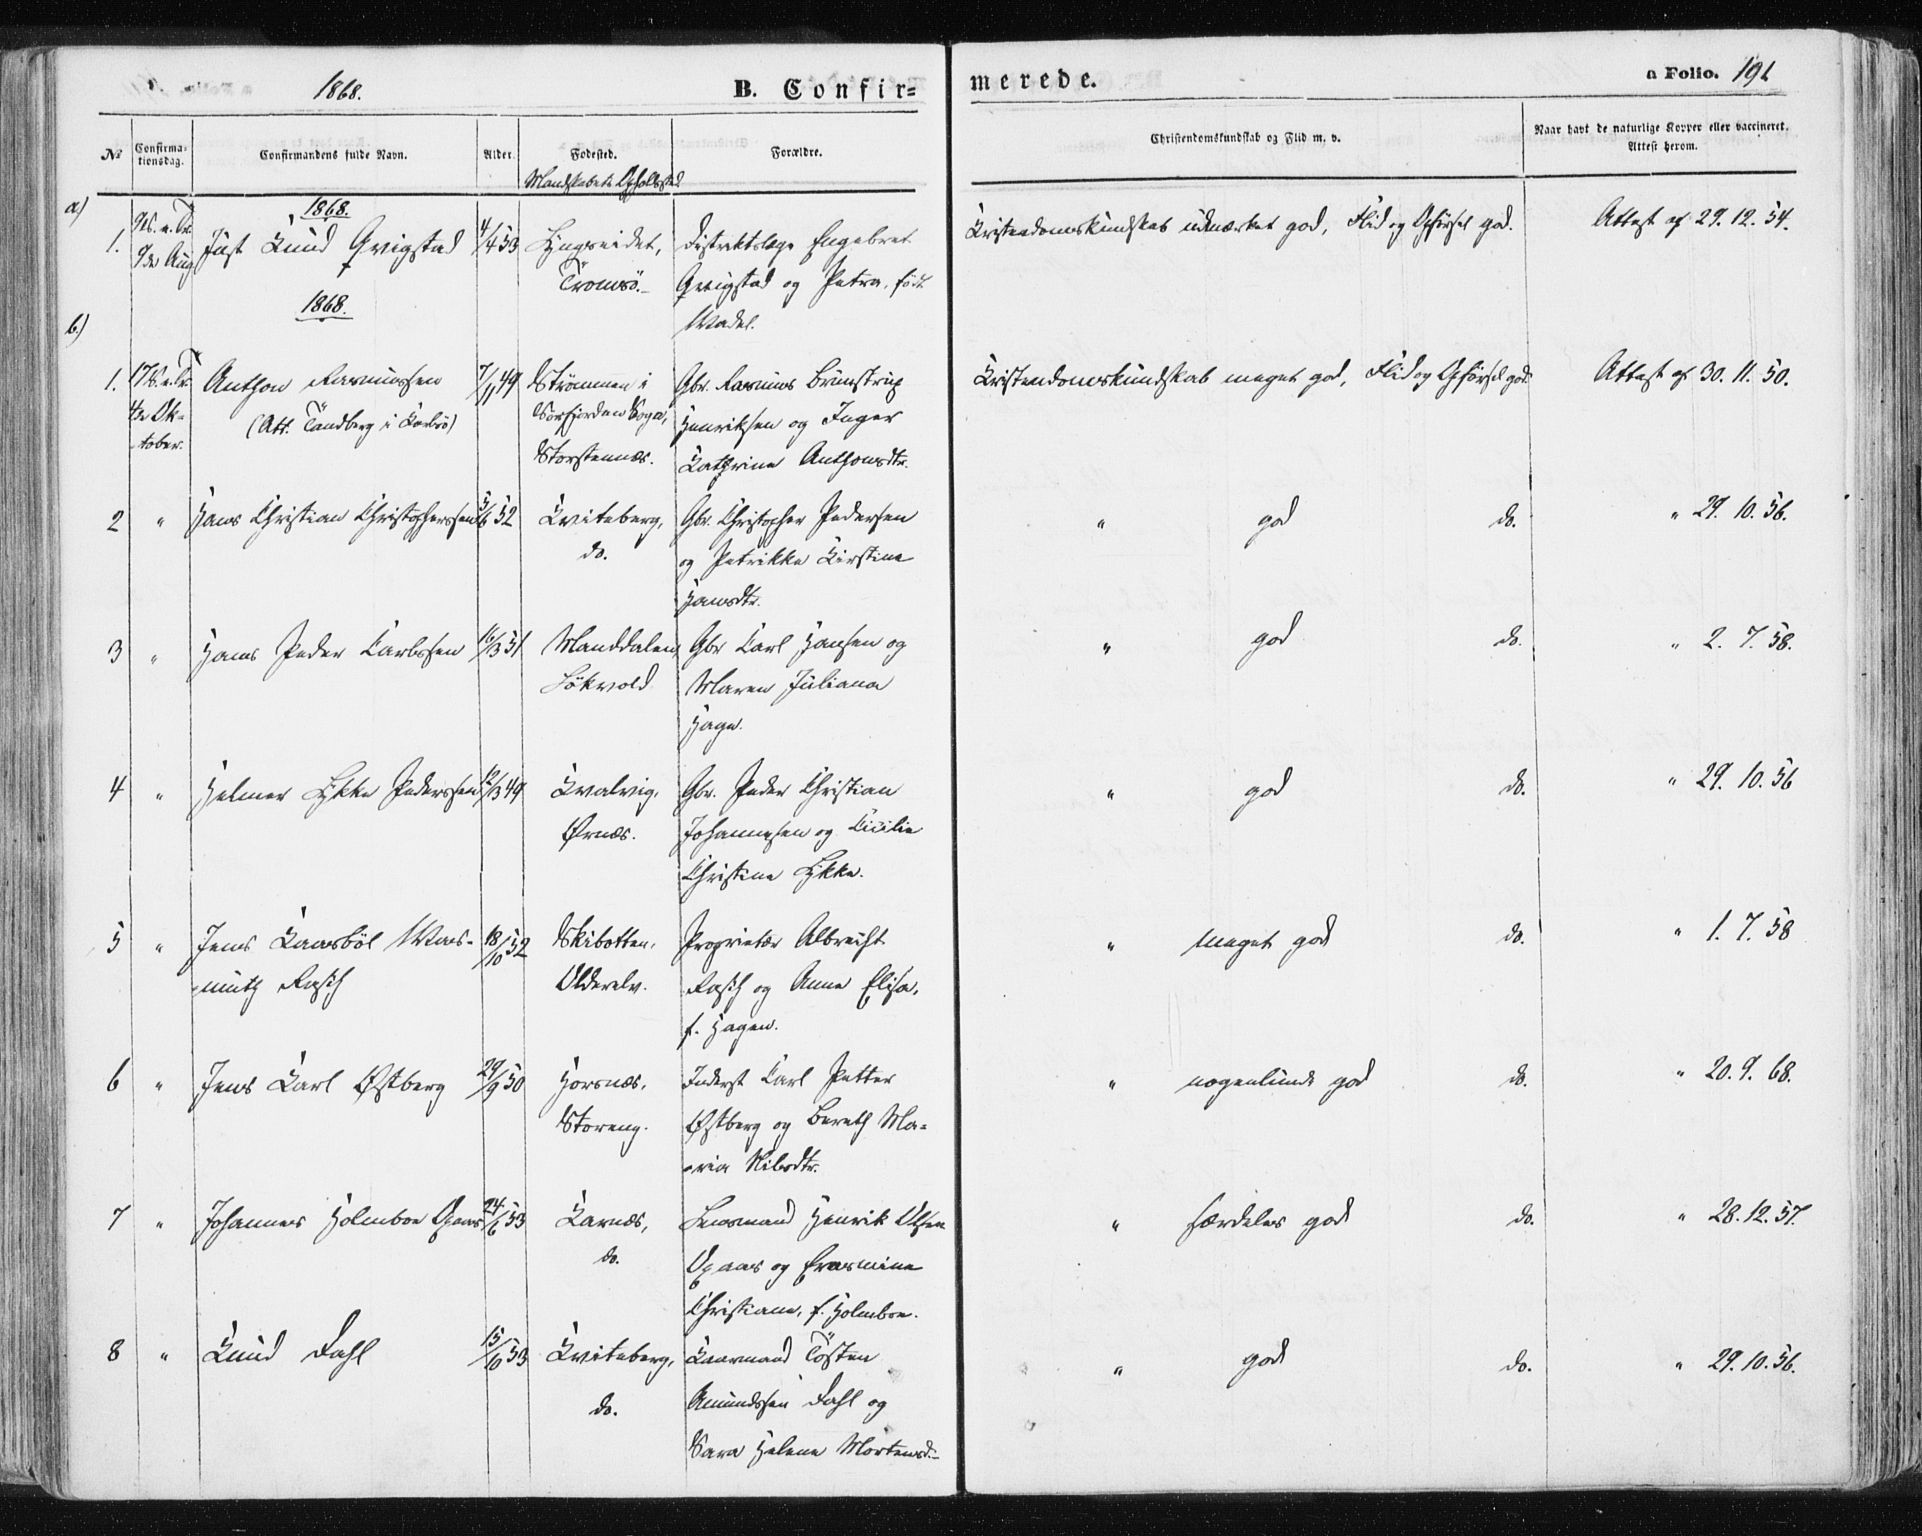 1868.
B. Confir=
merede.
a Folio. 191
№
Confirma-
tionsdag.
Confirmandens fulde Navn.
Alder.
Fodested.
Forældre.
Christendomskundskab og Flid m. v.
Naar havt de naturlige Kopper eller vaccineret.
Attest herom.
Mandskabets Opholdssted
a)
1868.
1.
9 S. e. Tr.
9de Aug
Just Knud Qvigstad
4/4 53
Lyngseidet,
Tromsö.
Distriktslæge Engebret
Qvigstad og Petra, født
Wadel.
Kristendomskundskab udmærket god, Flid og Opførsel god.
Attest af 29. 12. 54.
b)
1868.
1.
17 S. e. Tr.
4de Ok-
tober.
Anthon Rasmussen
(Att. Tandberg i Karlsö)
7/11 49
Strømmen i
Sørfjorden Sogn,
Storstennæs.
Gbr. Rasmus Brunstrup
Henriksen og Inger
Kathrine Anthonsdtr.
Kristendomskundskab meget god, Flid og Opførsel god
Attest af 30. 11. 50.
2 " Hans Christian Christophersen 5/6 52
Kviteberg,
do.
Gbr. Christopher Pedersen
og Petrikke Kirstine
Hansdtr.
" god do.
" 29. 10. 56.
3 " Hans Peder Carlssen 16/3 51
Manddalen,
Løkvold
Gbr Carl Hansen og
Maren Juliana
Hagn.
" god do.
" 2. 7. 58.
4 " Helmer Lykke Pederssen 12/3 49
Kvalvig,
Ørnæs.
Gbr. Peder Christian
Johannesen og Cicilie
Christine Lykke.
" god do.
" 29. 10. 56
5 " Jens Kaasböl Was-
muth Rasch
18/10 52
Skibotten,
Olderelv.
Proprietær Albrecht
Rasch og Anne Elisa,
f. Hagen.
" meget god do.
" 1. 7. 58
6 " Jens Karl Østberg 29/9 50
Horsnæs,
Storeng.
Inderst Carl Petter
Østberg og Bereth Ma-
ria Nilsdtr.
" nogenlunde god do.
" 20. 9. 68.
7 " Johannes Holmboe Opaas 24/6 53
Karnæs,
do.
Lensmand Henrik Olsen
Opaas og Erasmine
Christiane, f. Holmboe.
" særdeles god do.
" 28. 12. 57.
8 " Knud Dahl 15/10 53
Kviteberg,
do.
Kaarmand Tösten
Amundssen Dahl og
Sara Helene Mortensd-
" god do.
" 29. 10. 56.